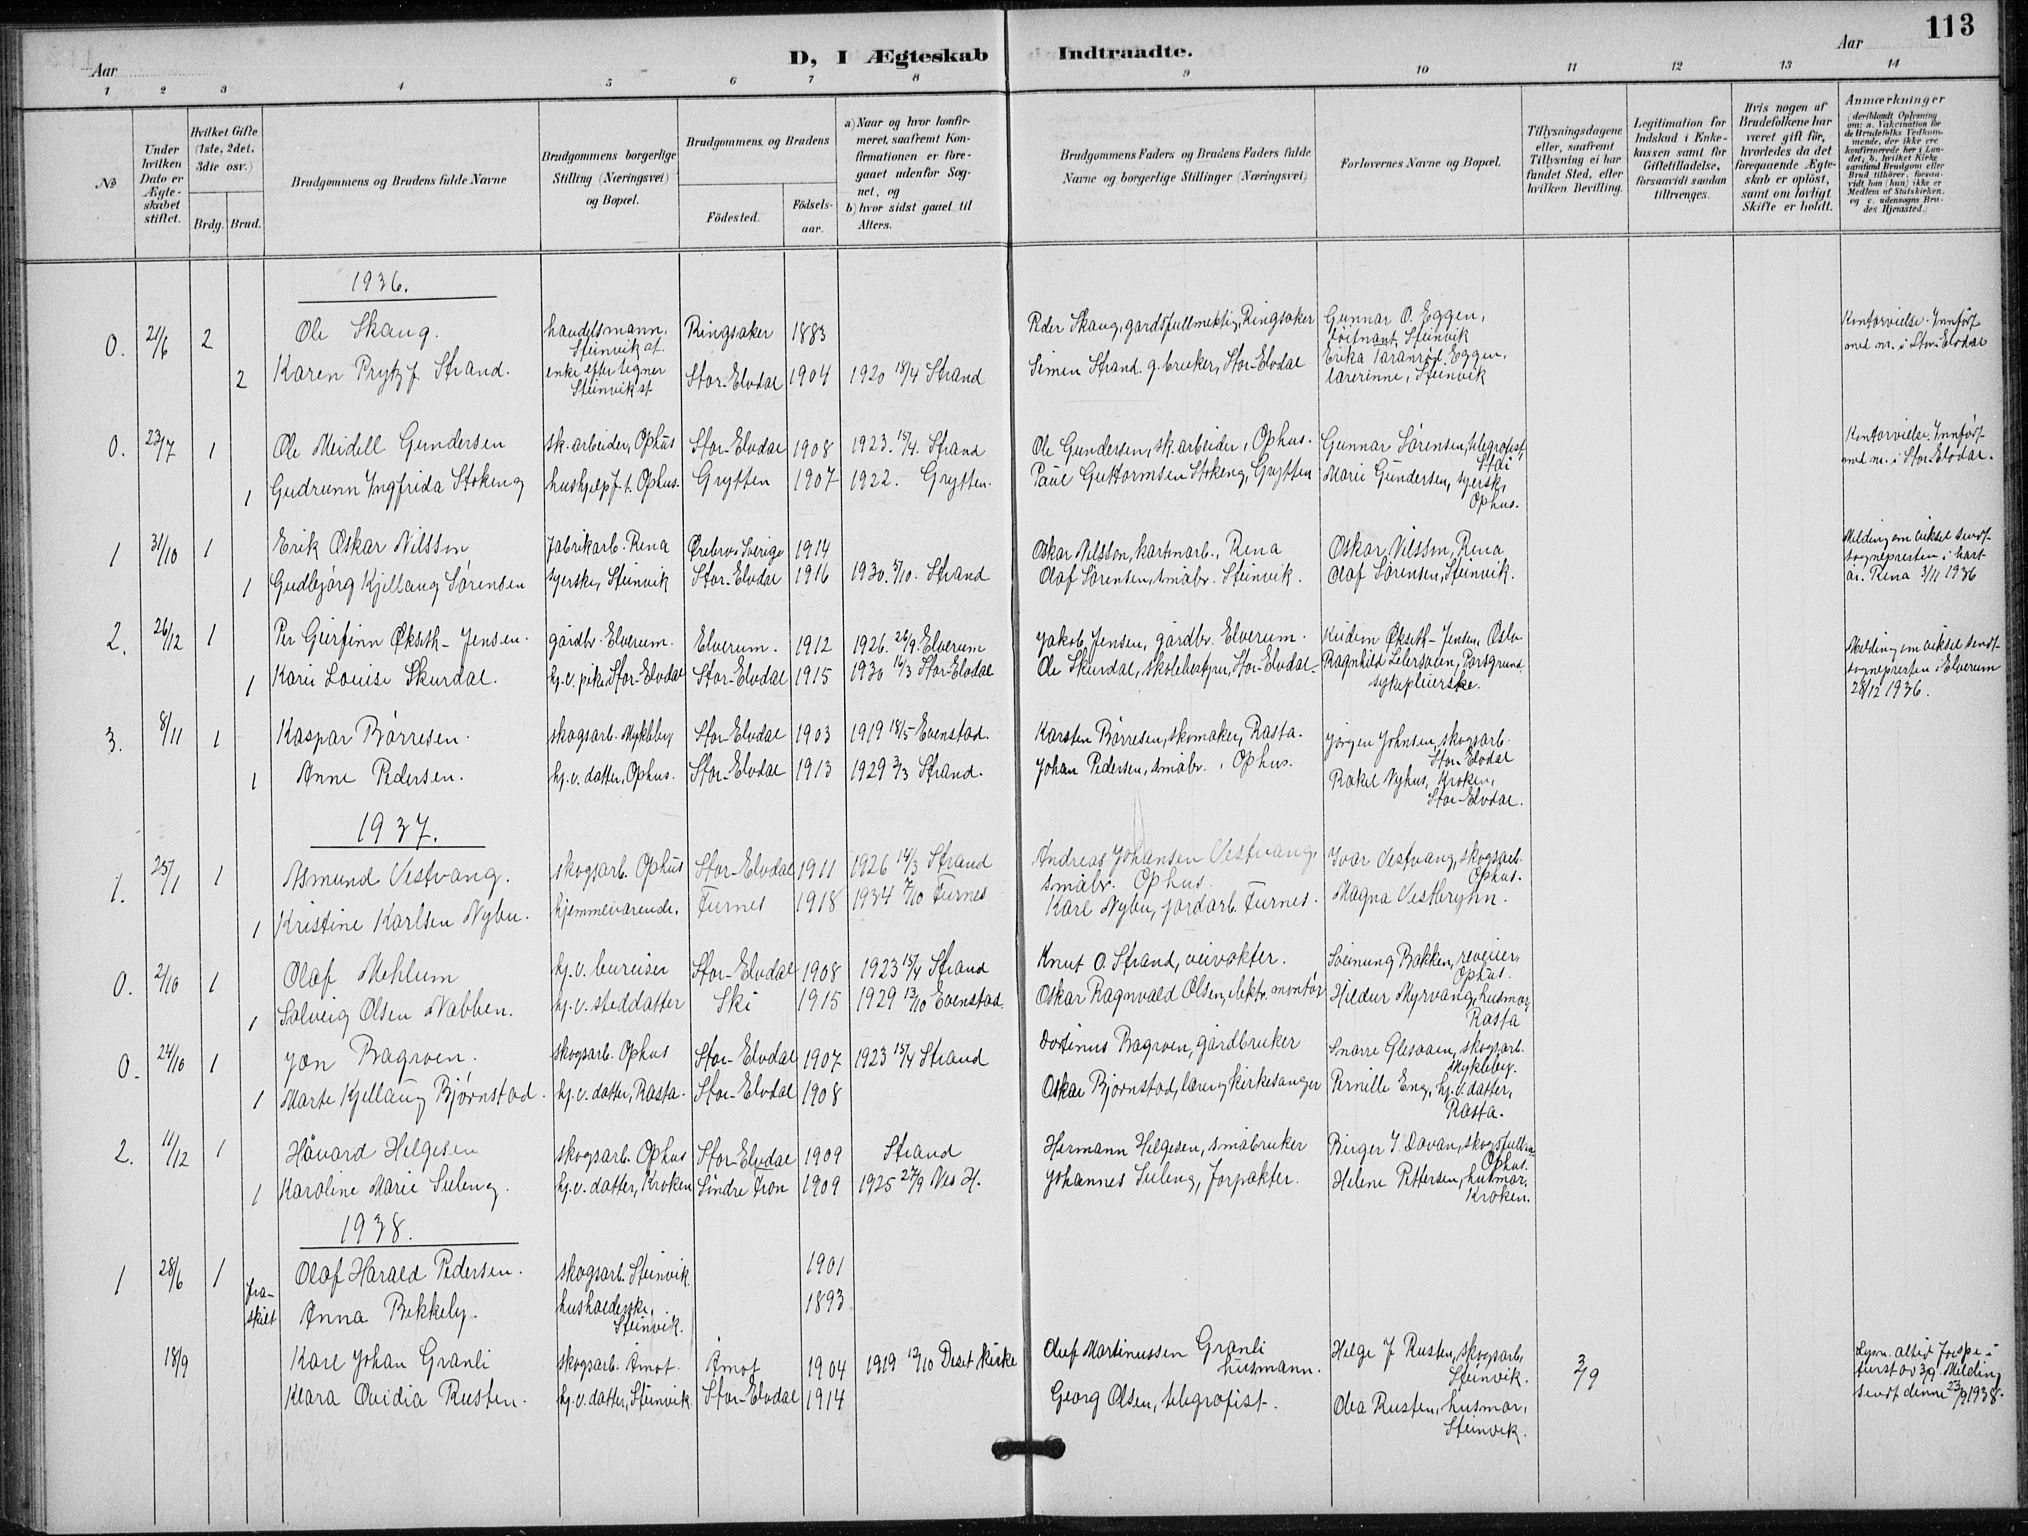 113
D, I Ægteskab Indtraadte.
Aar
Aar
1 2 3 4 5 6 7 8 9 10 11 12 13 14
No
Under hvilken Dato er Ægteskabet stiftet.
Hvilket Gifte (1ste, 2det, 3die osv.)
Brdg. Brud.
Brudgommens og Brudens fulde Navne
Brudgommens borgerlige Stilling (Næringsvei) og Bopæl.
Brudgommens og Brudens
Födested.
Födsels-aar.
a) Naar og hvor konfirmeret, saafremt Konfirmationen er foregaaet udenfor Sognet, og
b) hvor sidst gaaet til Alters.
Brudgommens Faders og Brudens Faders fulde Navne og borgerlige Stillinger (Næringsvei)
Forlovernes Navne og Bopæl.
Tillysningsdagene eller, saafremt Tillysning ei har fundet Sted, efter hvilken Bevilling.
Legitimation for Indskud i Enkekassen samt for Giftetilladelse, forsaavidt saadan tiltrænges.
Hvis nogen af Brudefolkene har været gift før, hvorledes da det foregaaende Ægteskab er oplöst, samt om lovligt Skifte er holdt.
Anmærkninger (deriblandt Oplysning om: a. Vakcination for de Brudefolks Vedkommende, der ikke ere konfirmerede her i Landet, b. hvilket Kirkesamfund Brudgom eller Brud tilhører, forsaavidt han (hun) ikke er Medlem af Statskirken, og c. udensogns Brudes Hjemsted.)
1936.
0. 21/6 2 Ole Skaug. handelsmann, Steinvik st. Ringsaker 1883 Peder Skaug, gardsfullmektig, Ringsaker Gunnar O. Eggen, löitnant, Steinvik Kontorvielse. Innført med nr. i Stor-Elvdal
2 Karen Prytz f. Strand. enke efter tegner Steinvik st Stor-Elvdal 1904 1920 18/4 Strand Simen Strand. g.bruker, Stor-Elvdal Erika Taranrød Eggen, lærerinne, Steinvik
0. 23/7 1 Ole Meidell Gundersen sk.arbeider, Ophus Stor-Elvdal 1908 1923. 15/4. Strand Ole Gundersen, sk.arbeider, Ophus. Gunnar Sørensen, telegrafist, Stai Kontorvielse. Innført med nr. i Stor-Elvdal.
1 Gudrunn Yngfrida Stokeng hushjelp f.t. Ophus. Grytten 1907 1922. Grytten. Paul Guttormsen Stokeng, Grytten Marie Gundersen, syersk, Ophus.
1 31/10 1 Erik Oskar Nilsson fabrikarb. Rena Ørebro, Sverige 1914 Oskar Nilsson, kartonarb., Rena Oskar Nilsson, Rena Melding om vielse sendt sognepresten i
1 Gudbjørg Kjellaug Sørensen syerske, Steinvik Stor-Elvdal 1916 1930. 5/10. Strand Olaf Sørensen, småbr. Steinvik. Olaf Sørensen, Steinvik. Rena 3/11 1936
2. 26/12 1 Per Geirfinn Økseth-Jensen. gårdbr. Elverum. Elverum. 1912 1926. 26/9. Elverum Jakob Jensen, gårdbr. Elverum. Økseth-Jensen, Oslo Melding om vielse sendt sognepresten i Elverum 28/12 1936.
1 Kari Louise Skurdal. hj.v. pike, Stor-Elvdal Stor-Elvdal 1915 1930 16/3 Stor-Elvdal Ole Skurdal, skolebestyrer, Stor-Elvdal Ragnhild Porsgrund sykepleierske.
3. 8/11 1 Kaspar Børresen. skogsarb. Mykleby Stor-Elvdal 1903 1919 18/5 Evenstad. Karsten Børresen, skomaker, Rasta. Jørgen Johnsen, skogsarb. Stor-Elvdal
1 Anne Pedersen. hj.v. datter, Ophus. Stor-Elvdal 1913 1929 3/3 Strand. Johan Pedersen, småbr., Ophus. Rakel Nyhus, Kroken, Stor-Elvdal.
1937.
1. 25/1 1 Asmund Vestvang. skogsarb. Ophus Stor-Elvdal 1911 1926 14/3 Strand Andreas Johansen Vestvang, småbr. Ophus. Ivar Vestvang, skogsarb. Ophus.
1 Kristine Karlsen Nybu. hjemmeværende. Furnes 1918 1934 7/10 Furnes Karl Nybu, jordarb. Furnes. Magna
0. 2/10 1 Olaf Mehlum hj.v. bureiser Stor-Elvdal 1908 1923 15/4 Strand Knut O. Strand, veivokter. Sveinung Bakken, Ophus.
1 Solveig Olsen Nabben. hj.v. steddatter Ski 1915 1929 13/10 Evenstad. Oskar Ragnvald Olsen, elektr. montør Hildur Myrvang, husmor, Rasta
0. 24/10 1 Jon Bagroen. skogsarb. Ophus Stor-Elvdal 1907 1923 15/4 Strand Dortinus Bagroen, gårdbruker Snorre Glesaaen, skogsarb. Mykleby.
1 Marte Kjellaug Bjørnstad. hj.v. datter, Rasta. Stor-Elvdal 1908 Oskar Bjørnstad, lærer og kirkesanger Pernille Eng, hj.v. datter, Rasta.
2. 11/12 1 Håvard Helgesen skogsarb. Ophus Stor-Elvdal 1909 Strand Hermann Helgesen, småbruker Birger J. Dovan, skogsfullm. Ophus.
1 Karoline Marie Suleng. hj.v. datter, Kroken Söndre Fron 1909 1925 27/9 Johannes Suleng, forpakter. Helene Pettersen, husmor, Kroken.
1938.
1 28/6 1 Olaf Harald Pedersen. skogsarb. Steinvik. 1901
fra-skilt Anna Bekkely. husholderske, Steinvik. 1893
18/9 Karl Johan Granli skogsarb. Åmot. Åmot 1904 1919 12/10 Deset kirke Oluf Martinussen Granli husmann. Helge J Rusten, skogsarb, Steinvik. 3/9
Klara Ovidia Rusten. hj.v. datter, Steinvik. Stor-Elvdal 1914 Georg Olsen, telegrafist. Olea Rusten, husmor, Steinvik. Melding sendt denne 23/9 1938.